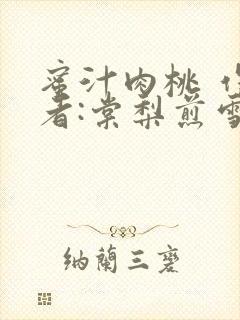 蜜汁肉桃 作
者:棠梨煎雪
納蘭三